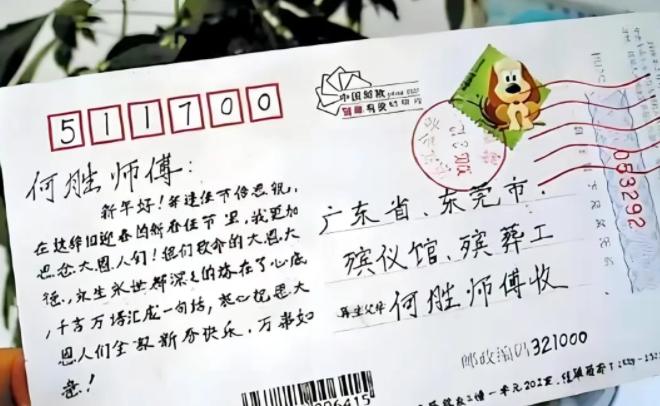 511700
中国邮政
何胜师傅:
新年好!年逢佳节倍思祝,
在这辞旧迎春的新春佳节里,我更加
思念大恩人们!您们救命的大恩大
德,永生永世都深深的落在了心底
,千言万语汇成一句话,衷心祝愿大
恩人们全家新春快乐,万事如
意!
广东省、东莞市、
殡仪馆、殡葬工
再生父母 何胜师傅收
邮政编码 321000
053292
006415